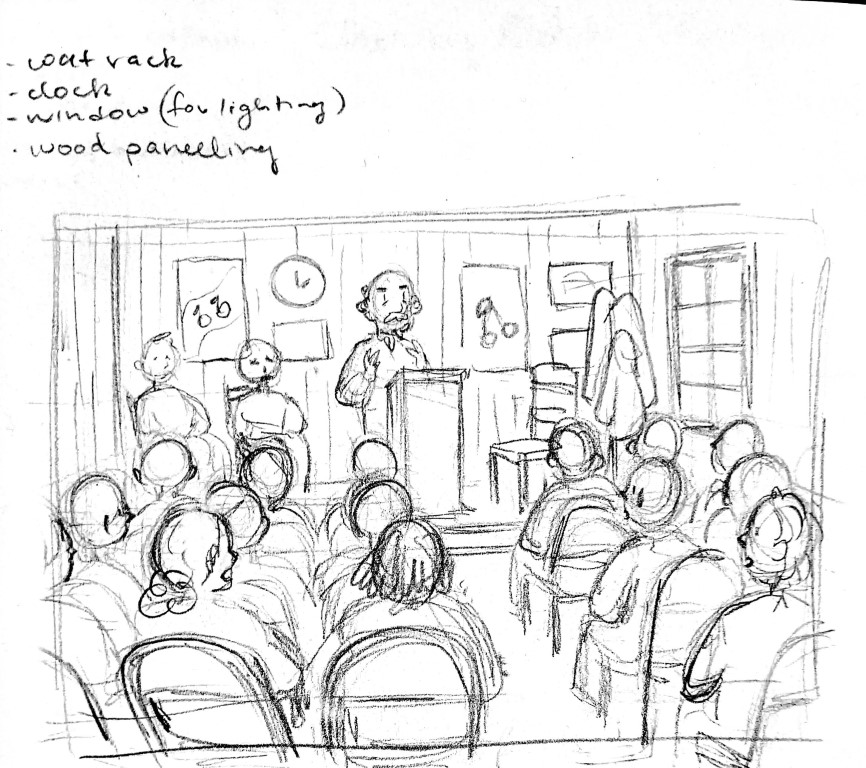 - coat rack
- clock
- window (for lighting)
· wood panelling